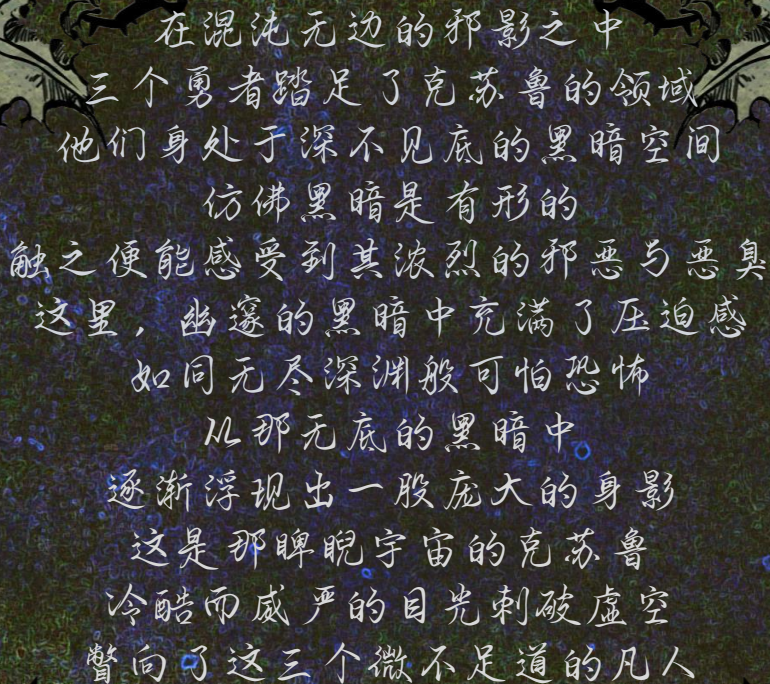 在混沌无边的邪影之中
三个勇者踏足了克苏鲁的领域
他们身处于深不见底的黑暗空间
仿佛黑暗是有形的
触之便能感受到其浓烈的邪恶与恶臭
这里，幽邃的黑暗中充满了压迫感
如同无尽深渊般可怕恐怖
从那无底的黑暗中
逐渐浮现出一股庞大的身影
这是那睥睨宇宙的克苏鲁
冷酷而威严的目光刺破虚空
瞥向了这三个微不足道的凡人